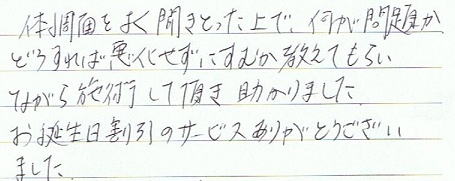 体調面をよく聞きとった上で、何が問題か
どうすれば悪化せずにすむか教えてもらい
ながら施術して頂き助かりました
お誕生日割引のサービスありがとうござい
ました